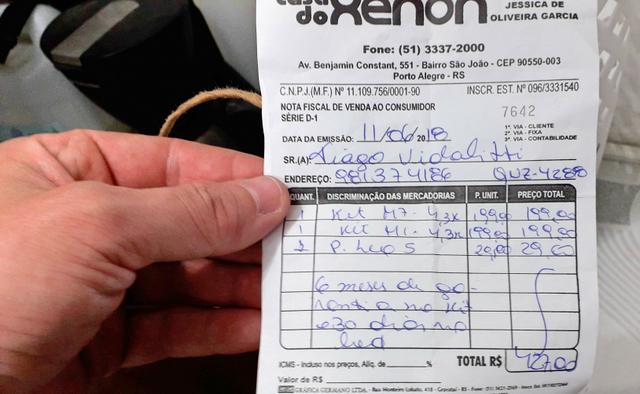 do xenon
JESSICA DE
OLIVEIRA GARCIA
Fone: (51) 3337-2000
Av. Benjamin Constant, 551 - Bairro São João - CEP 90550-003
Porto Alegre - RS
C.N.P.J.(M.F.) Nº 11.109.756/0001-90 INSCR. EST. Nº 096/3331540
NOTA FISCAL DE VENDA AO CONSUMIDOR
SÉRIE D-1
7642
1ª VIA - CLIENTE
2ª VIA - FIXA
3ª VIA - CONTABILIDADE
DATA DA EMISSÃO: 11/06/2018
SR.(A): Tiago
ENDEREÇO: 981374186
QUANT. DISCRIMINAÇÃO DAS MERCADORIAS P. UNIT. PREÇO TOTAL
1 Kit H7 - 4,3K 199,00 199,00
1 Kit H1 - 4,3K 199,00 199,00
P. Leds 29,00 29,00
6 meses de ga-
rantia no kit
e 30 dias no
led
ICMS - Incluso nos preços, Alíq. de % TOTAL R$ 427,00
Valor de R$
GRÁFICA GERMANO LTDA. - Rua Monteiro Lobato, 418 - Gravataí - RS